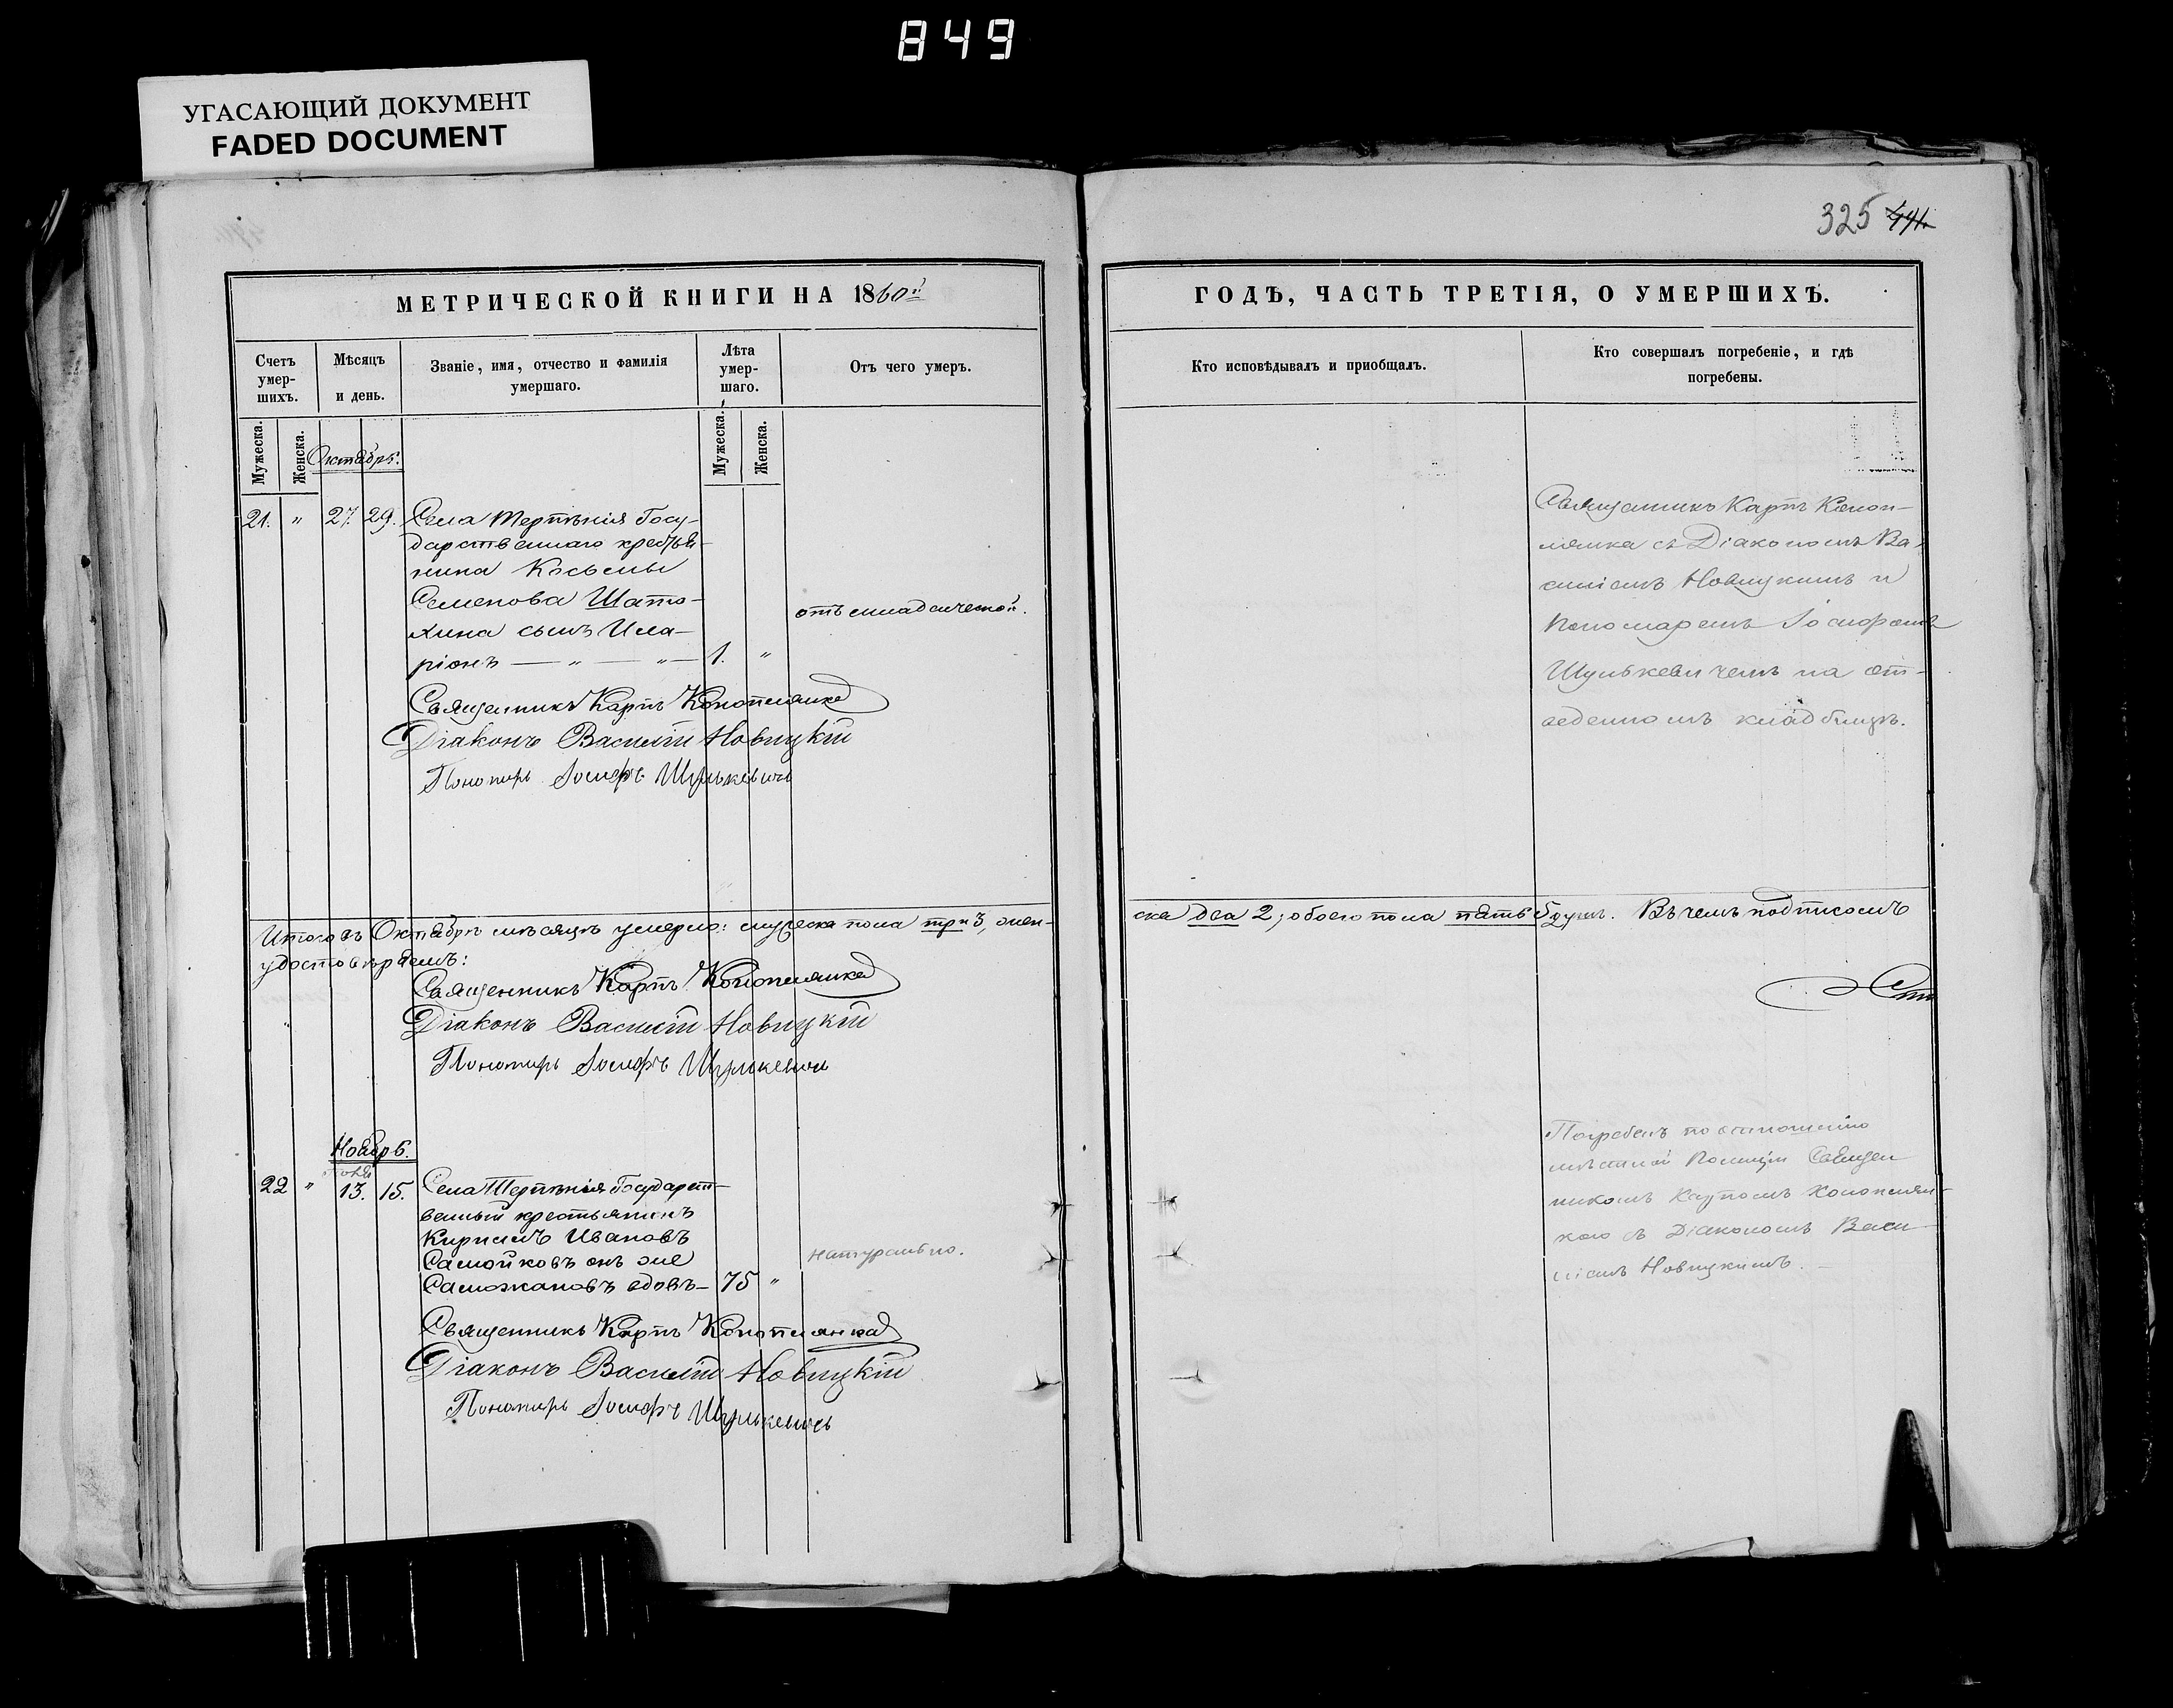 849
УГАСАЮЩИЙ ДОКУМЕНТ
FADED DOCUMENT
325 441.
МЕТРИЧЕСКОЙ КНИГИ НА 1860й
Счетъ умер-шихъ.
Мѣсяцъ и день.
Званіе, имя, отчество и фамилія умершаго.
Лѣта умер-шаго.
Отъ чего умеръ.
Мужеска.
Женска.
Мужеска.
Женска.
Октябрь.
21. " 27. 29. Села Терпѣнія Госу-
дарственнаго крестья-
нина Косьмы
Семенова Шато-
хина сынъ Ила-
ріонъ — " — " — 1. "
отъ младенческой.
Священникъ Карпъ Конопляика
Діаконъ Василій Новицкій
Пономарь Іосифъ Шулькевичъ
Итого въ Октябрѣ мѣсяцѣ умерло: мужеска пола три 3, жен-
удостовѣряемъ:
Священникъ Карпъ Конопляика
Діаконъ Василій Новицкій
Пономарь Іосифъ Шулькевичъ
Ноябрь.
22 " 13. 15. Села Терпѣнія Государст-
венный крестьянинъ
Кириллъ Ивановъ
Самойловъ онъ же
вдовъ — 75 "
натурально.
Священникъ Карпъ Конопляика
Діаконъ Василій Новицкій
Пономарь Іосифъ Шулькевичъ
ГОДЪ, ЧАСТЬ ТРЕТІЯ, О УМЕРШИХЪ.
Кто исповѣдывалъ и приобщалъ.
Кто совершалъ погребеніе, и гдѣ погребены.
Священникъ Карпъ Коноп-
ляика съ Діакономъ Ва-
силіемъ Новицкимъ и
Пономаремъ Іосифомъ
Шулькевичемъ на от-
веденномъ кладбищѣ.
ска два 2, обоего пола пять 5 душъ. Въ чемъ подписомъ
Погребенъ по отношенію
мѣстной Полиціи Священ
никомъ Карпомъ Коноплян-
кою съ Діакономъ Васи
ліемъ Новицкимъ.